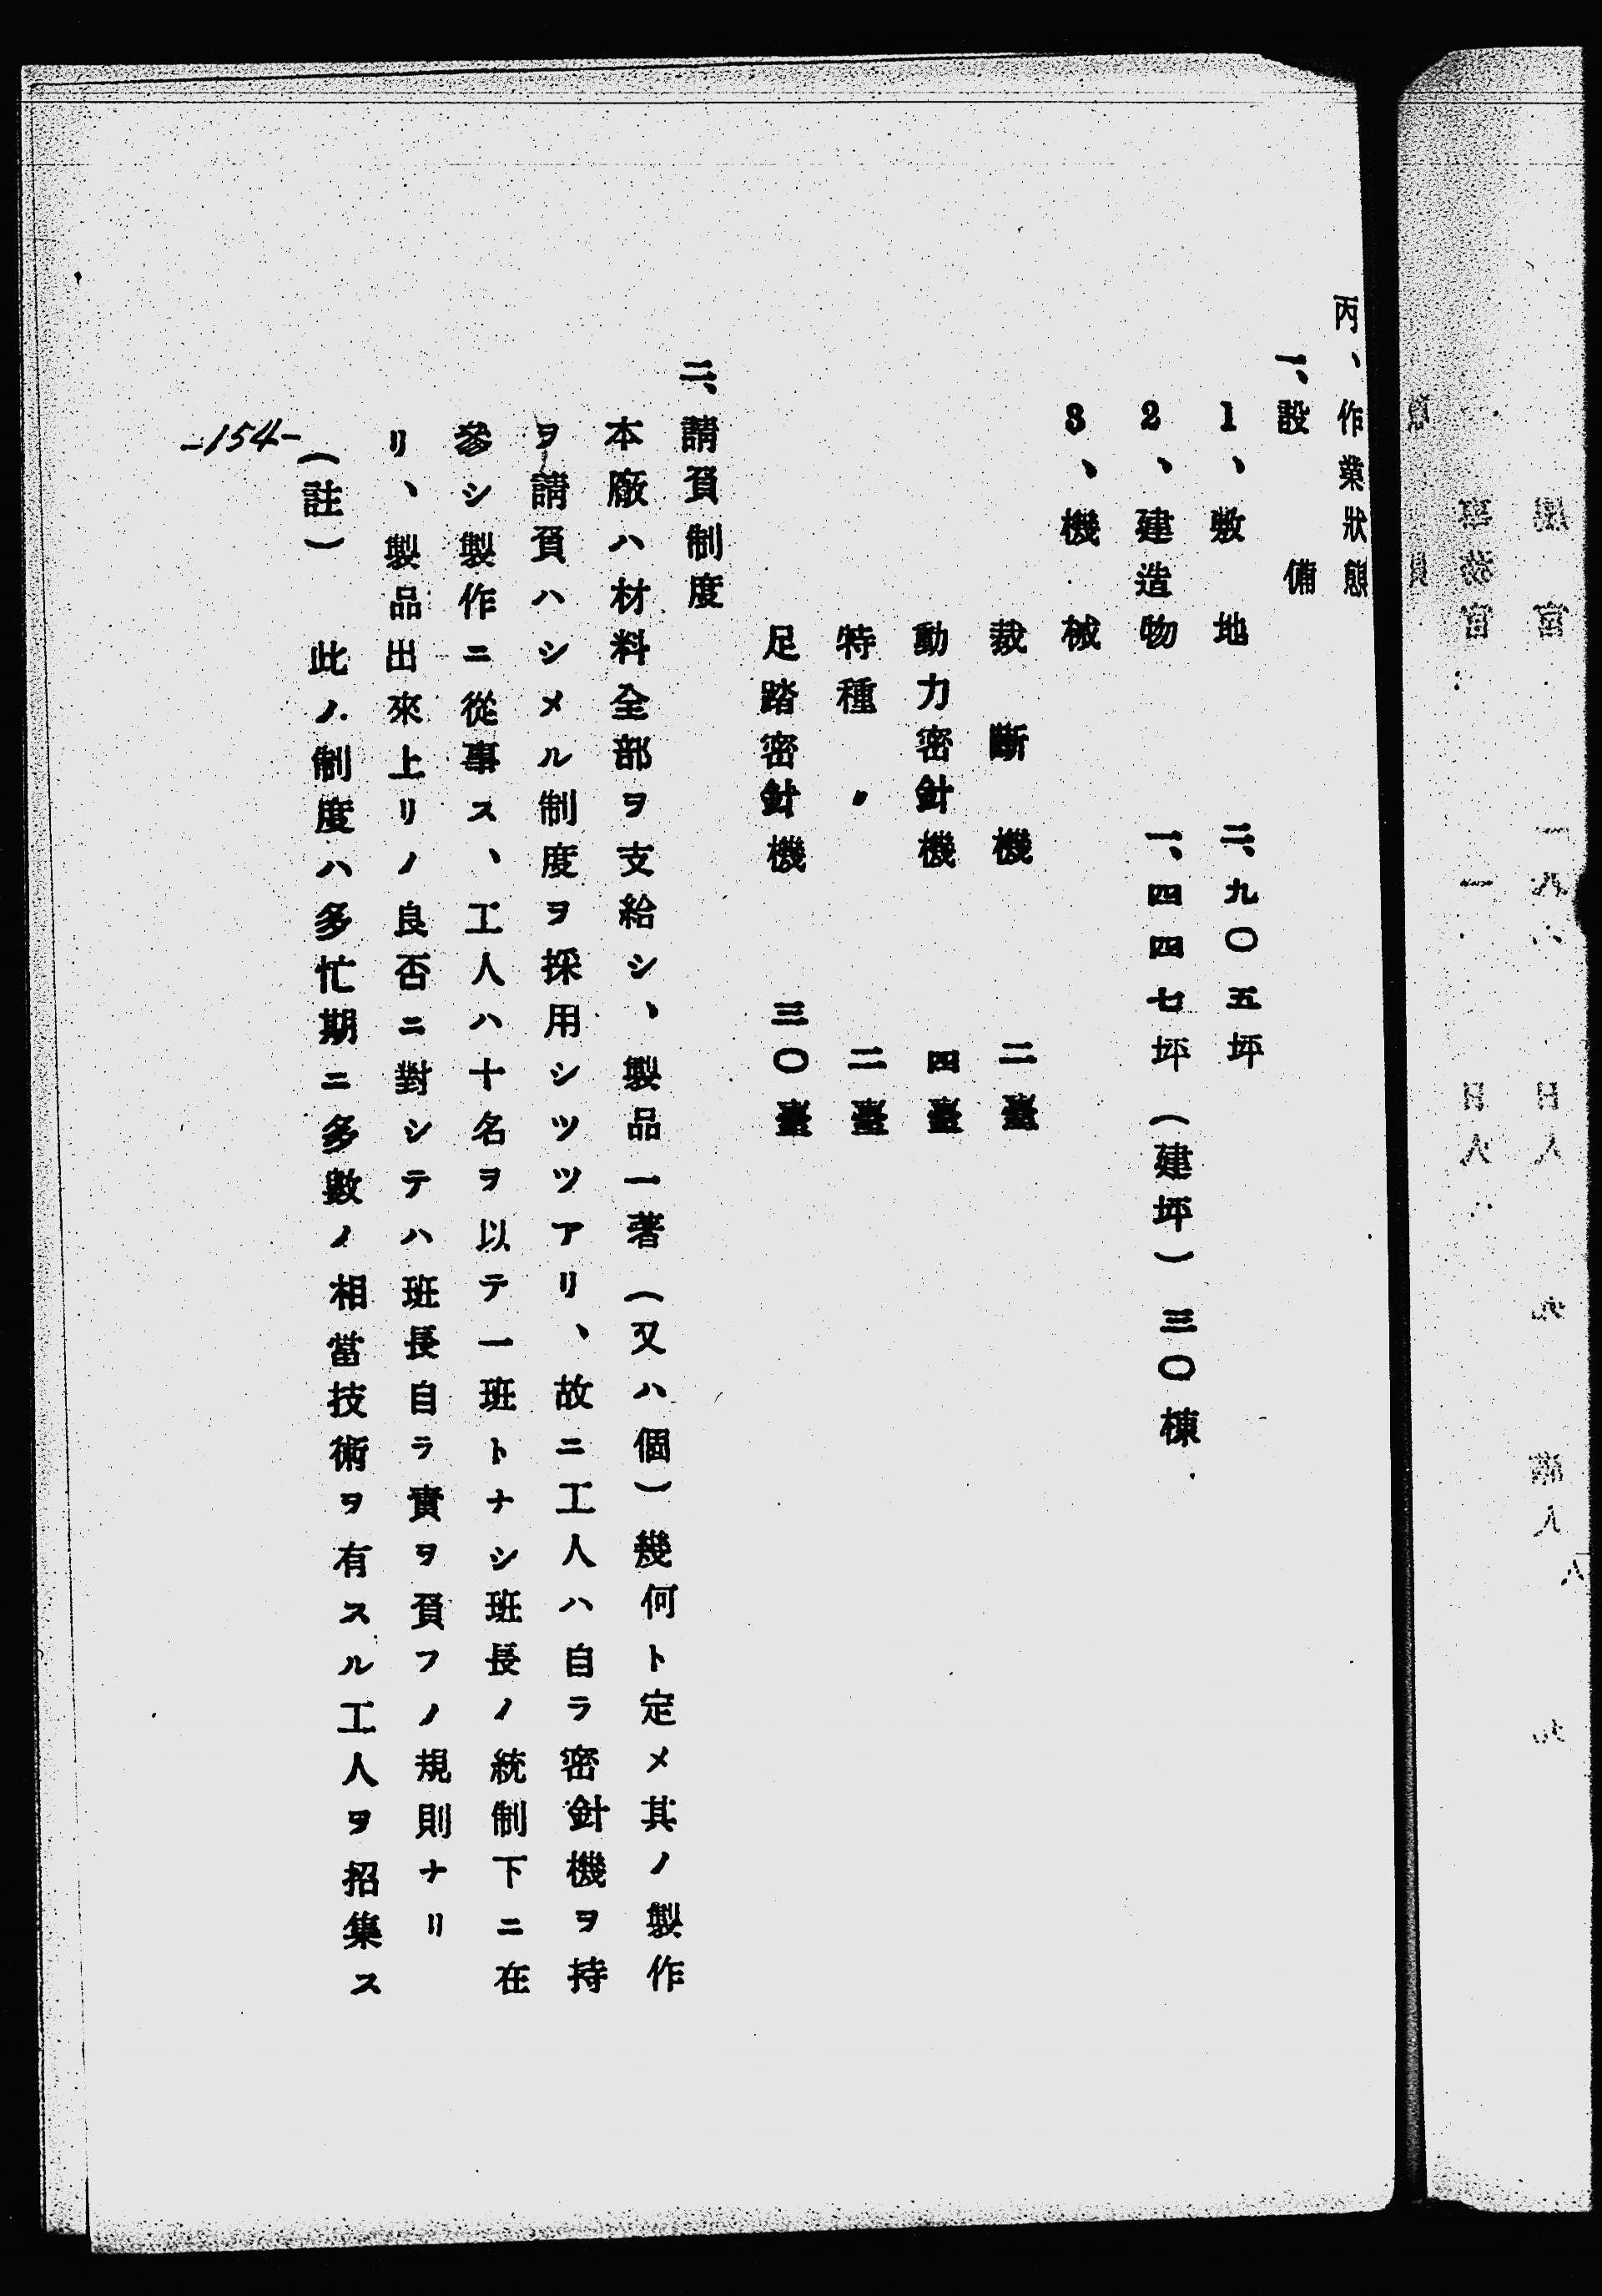 丙、作業狀態
一、設備
1、敷地 二、九〇五坪
2、建造物 一、四四七坪(建坪)三〇棟
3、機械
裁斷機 二臺
動力密針機 四臺
特種〃 二臺
足踏密針機 三〇臺
二、請負制度
本廠ハ材料全部ヲ支給シ、製品一著(又ハ個)幾何ト定メ其ノ製作
ヲ請負ハシメル制度ヲ採用シツツアリ、故ニ工人ハ自ラ密針機ヲ持
參シ製作ニ從事ス、工人ハ十名ヲ以テ一班トナシ班長ノ統制下ニ在
リ、製品出來上リノ良否ニ對シテハ班長自ラ責ヲ負フノ規則ナリ
(註) 此ノ制度ハ多忙期ニ多數ノ相當技術ヲ有スル工人ヲ招集ス
-154-